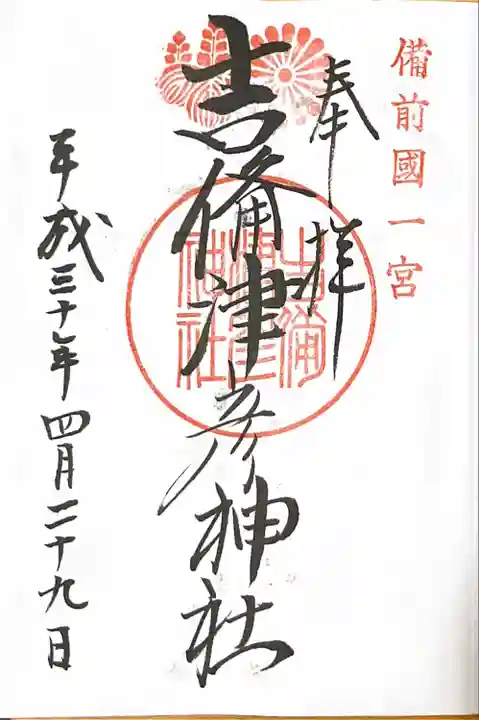 備前國一宮
奉拝
吉備津彦神社
吉備津彦神社
平成三十年四月二十九日